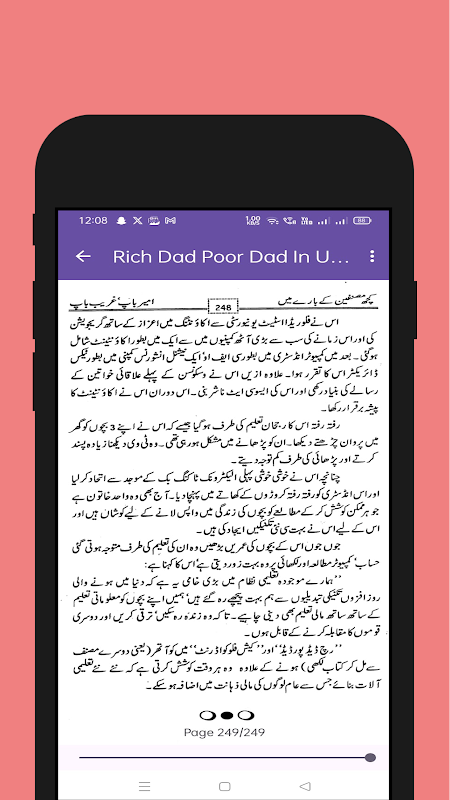 12:08
1.00 KB/S
88
Rich Dad Poor Dad In U...
کچھ مصنفین کے بارے میں 248 امیر باپ غریب باپ
اس نے فلوریڈا اسٹیٹ یونیورسٹی سے اکاؤنٹنگ میں اعزاز کے ساتھ گریجویشن
کی اور اس زمانے کی سب سے بڑی آٹھ کمپنیوں میں سے ایک میں بطور اکاؤنٹینٹ شامل
ہو گئی۔ بعد میں کمپیوٹر انڈسٹری میں بطور سی ایف او' ایک نیشنل انشورنس کمپنی میں بطور ٹیکس
ڈائریکٹر اس کا تقرر ہوا۔ علاوہ ازیں اس نے وسکونسن کے پہلے علاقائی خواتین کے
رسالے کی بنیاد رکھی اور اس کی ایسوسی ایٹ ناشر بنی۔ اس دوران اس نے اکاؤنٹینٹ کا
پیشہ برقرار رکھا۔
رفتہ رفتہ اس کا رجحان تعلیم کی طرف ہو گیا جیسے کہ اس نے اپنے 3 بچوں کو گھر
میں پروان چڑھتے دیکھا۔ ان کو پڑھانے میں مشکل ہو رہی تھی۔ وہ ٹی وی دیکھنا زیادہ پسند
کرتے اور پڑھائی کی طرف کم توجہ دیتے۔
چنانچہ اس نے خوشی خوشی پہلی الیکٹرونک ٹاکنگ بک کے موجد سے اتحاد کر لیا
اور اس انڈسٹری کو رفتہ رفتہ کروڑوں کے کھاتے میں پہنچا دیا۔ آج بھی وہ واحد خاتون ہے
جو ہر ممکن کوشش کر کے مطالعے کو بچوں کی زندگی میں واپس لانے کے لیے کوشاں ہیں اور
اس کے لیے اس نے بہت سی نئی تکنیکیں ایجاد کی ہیں۔
جوں جوں اس کے بچوں کی عمریں بڑھیں وہ ان کی تعلیم کی طرف متوجہ ہوتی گئی
حساب' کمپیوٹر' مطالعہ اور لکھائی پر وہ بہت زور دیتی ہے' اس کا کہنا ہے:
''ہمارے موجودہ تعلیمی نظام میں بڑی خامی یہ ہے کہ دنیا میں ہونے والی
روز افزوں تکنیکی تبدیلیوں سے ہم بہت پیچھے رہ گئے ہیں' ہمیں اپنے بچوں کو معلوماتی تعلیم
کے ساتھ ساتھ مالی تعلیم بھی دینی چاہیے۔ تا کہ وہ زندہ رہ سکیں' ترقی کریں اور دوسری
قوموں کا مقابلہ کرنے کے قابل ہوں۔
''رچ ڈیڈ پور ڈیڈ'' اور ''کیش فلو کواڈرنٹ'' میں کو آتھر (یعنی دوسرے مصنف
سے مل کر کتاب لکھی) ہونے کے علاوہ وہ ہر وقت کوشش کرتی ہے کہ نئے نئے تعلیمی
آلات بنائے جس سے عام لوگوں کی مالی ذہانت میں اضافہ ہو سکے۔
Page 249/249